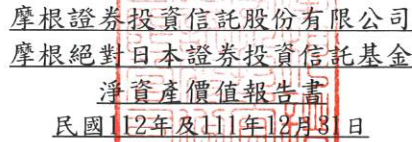 摩根證券投資信託股份有限公司
摩根絕對日本證券投資信託基金
淨資產價值報告書
民國112年及111年12月31日